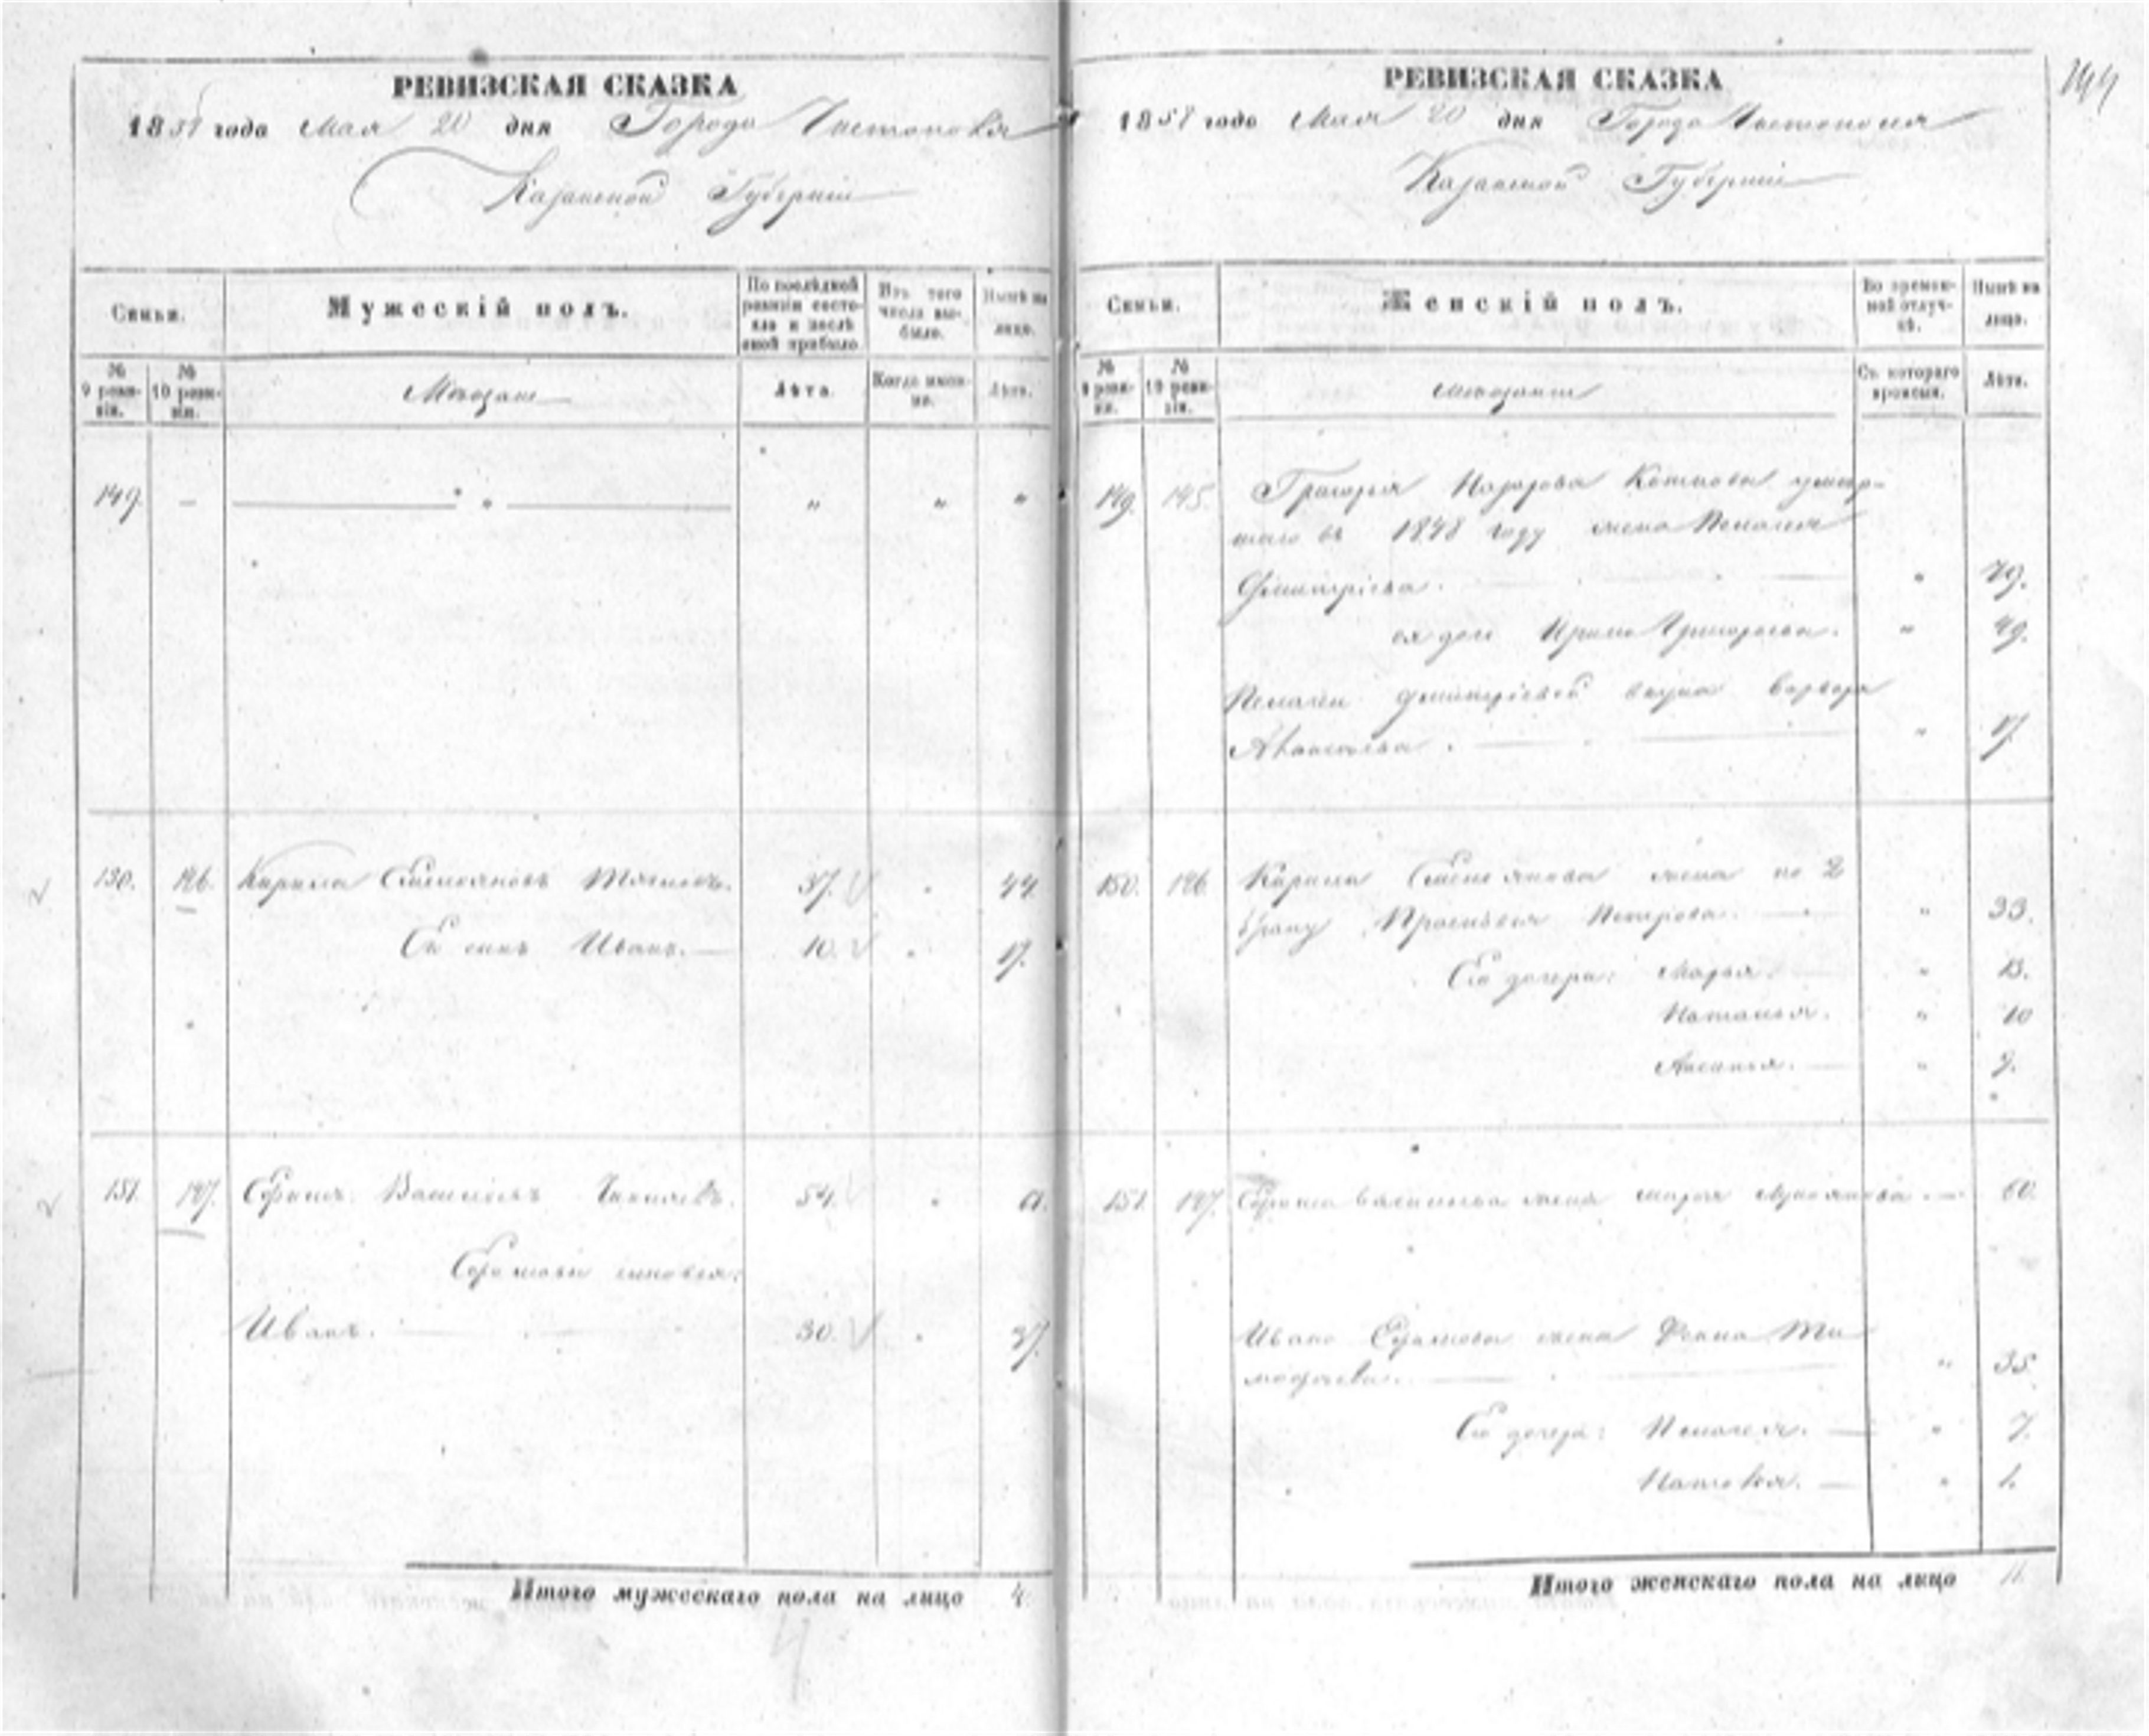 РЕВИЗСКАЯ СКАЗКА
1858 года Мая 20 дня Города Чистополя
Казанской Губернии
Семьи.
Мужескій полъ.
По послѣдней ревизіи состояло и послѣ оной прибыло
Изъ того числа выбыло.
Нынѣ на лицо.
№ 9 ревизіи.
№ 10 ревизіи.
Мещане
Лѣта.
Когда именно.
Лѣта.
149. — „ „ „ „
150. 146. Кирила Емельяновъ 37. 44.
Его сынъ Иванъ. 10. 17.
151. 147. Ефимъ Васильевъ 54. 61.
Ефимовы сыновья:
Иванъ. 30. 37.
Итого мужескаго пола на лицо 4.
144
РЕВИЗСКАЯ СКАЗКА
1858 года Мая 20 дня Города Чистополя
Казанской Губернии
Семьи.
Женскій полъ.
Во временной отлучкѣ.
Нынѣ на лицо.
№ 9 ревизіи.
№ 10 ревизіи.
Мещане
Съ котораго времени.
Лѣта.
149. 145. Григорья Назарова умер-
шаго въ 1848 году жена Пелагея
Дмитріева. „ 79.
ея дочь Ирина Григорьева. „ 49.
Пелагеи Дмитріевой внука Варвара
„ 17.
150. 146. Кирила Емельянова жена по 2
браку Прасковья Петрова. „ 33.
Его дочери: Марья. „ 13.
Наталья. „ 10
Аксинья. „ 7.
151. 147. Ефима Васильева жена Марья Лукоянова. 60.
Ивана Ефимова жена Фекла Ти-
мофеева. „ 35.
Его дочери: Пелагея. „ 7.
Наталья. „ 1.
Итого женскаго пола на лицо 11.